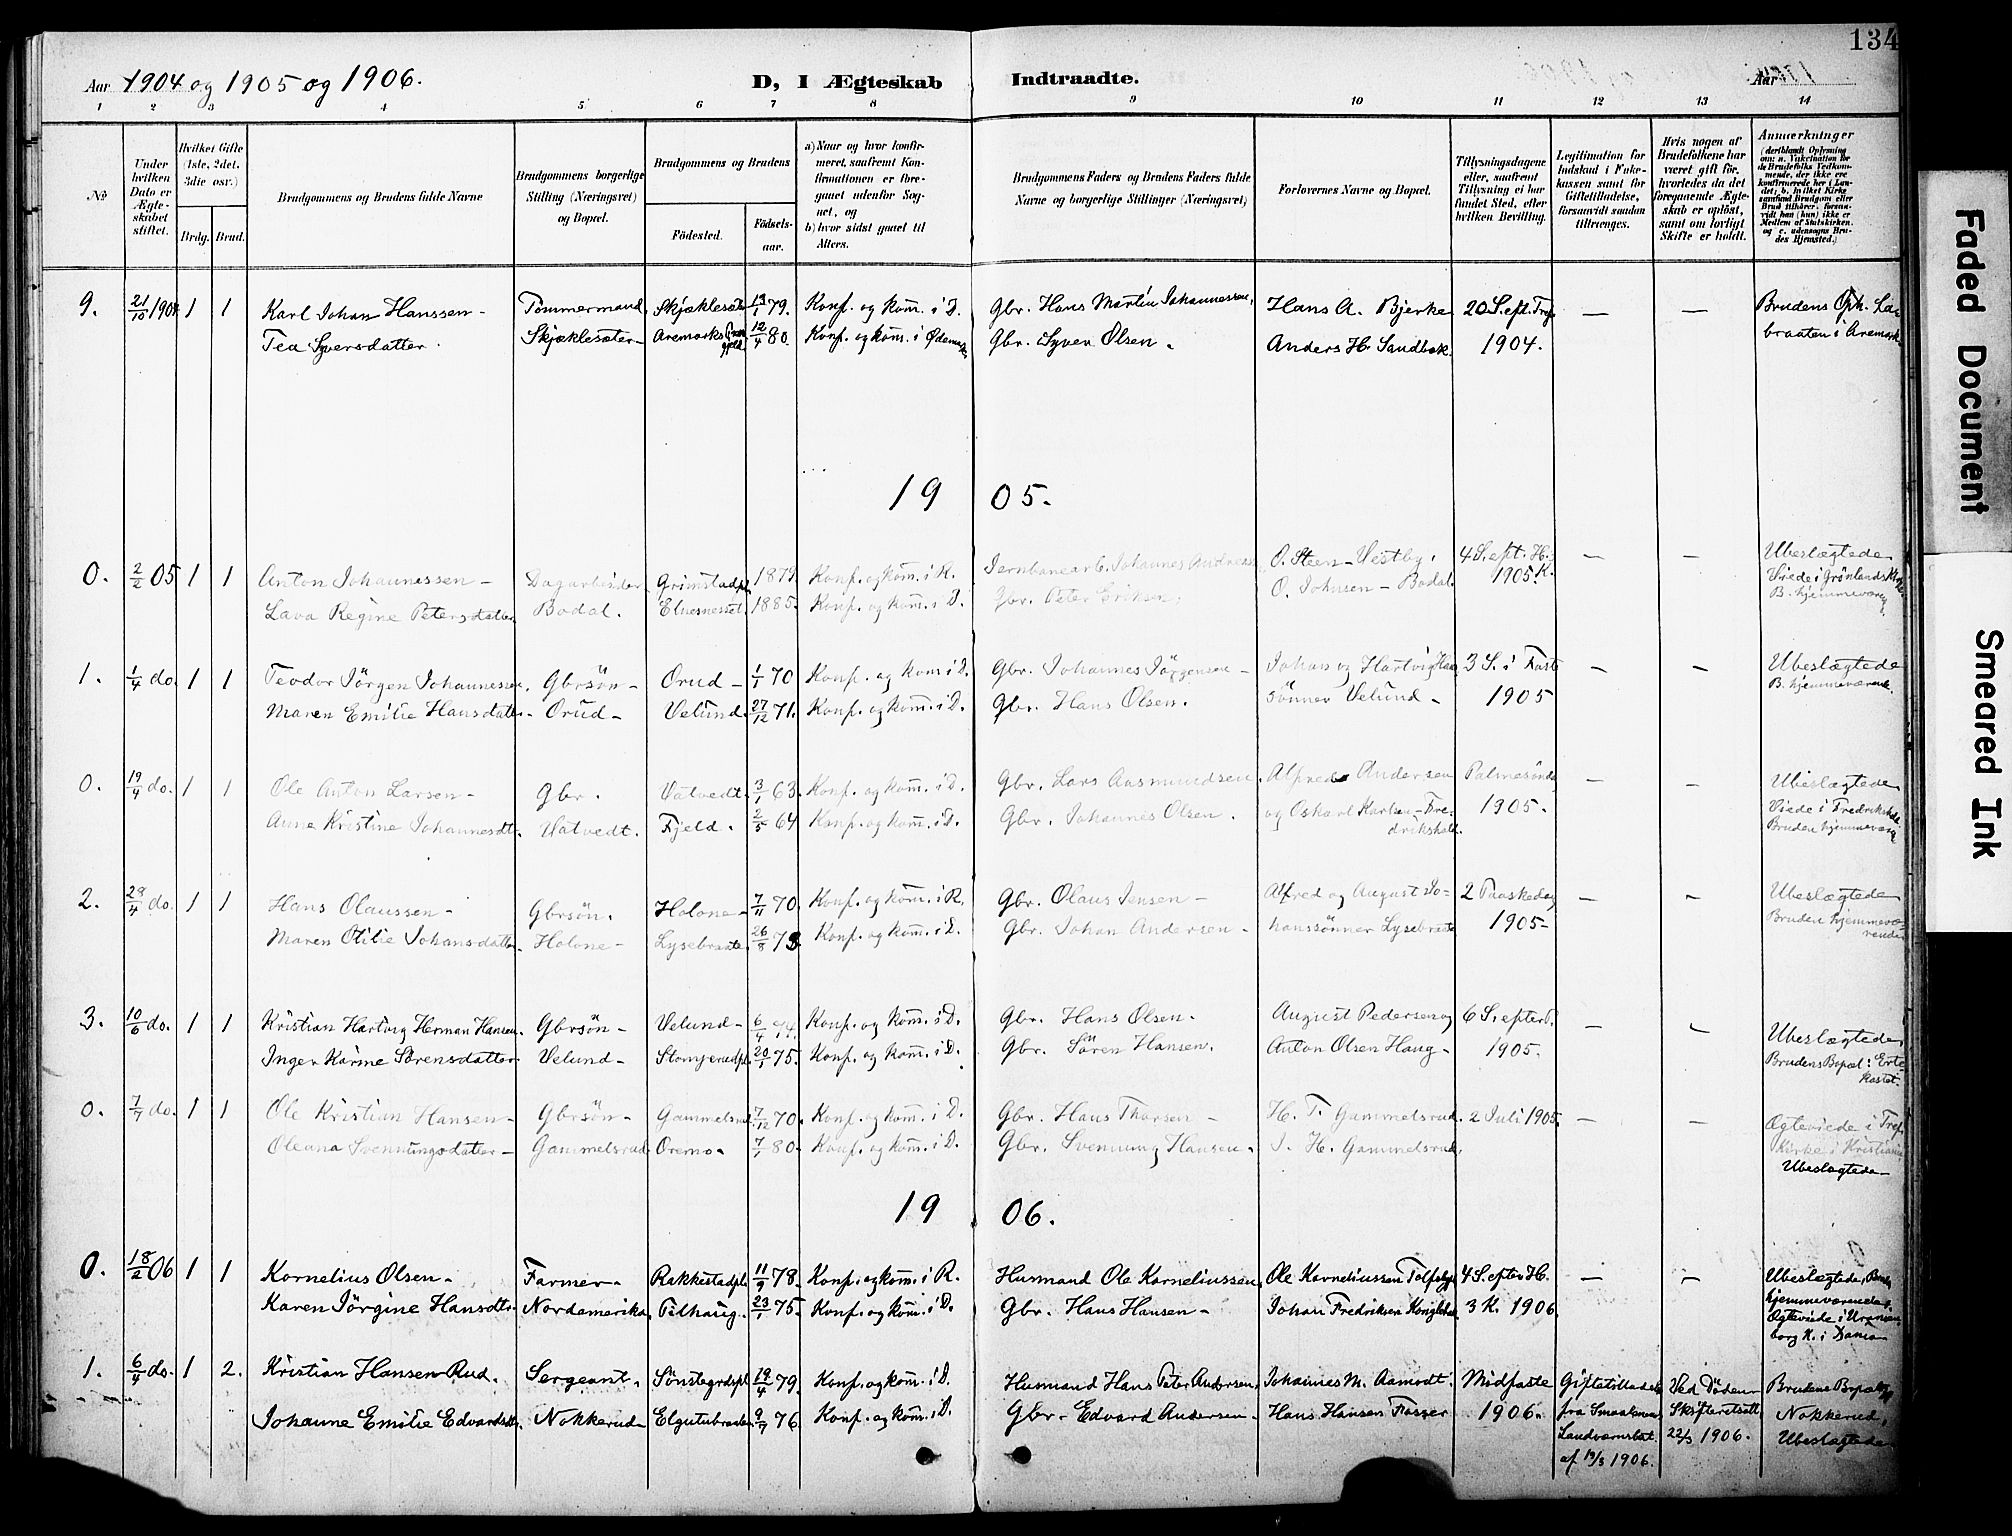 134
Aar 1904 og 1905 og 1906.
D, I Ægteskab Indtraadte.
Aar
1 2 3 4 5 6 7 8 9 10 11 12 13 14
No
Under hvilken Dato er Ægteskabet stiftet.
Hvilket Gifte (1ste, 2det, 3die osv.)
Brdg. Brud.
Brudgommens og Brudens fulde Navne
Brudgommens borgerlige Stilling (Næringsvei) og Bopæl.
Brudgommens og Brudens
Fødested. Fødselsaar.
a) Naar og hvor konfirmeret, saafremt Konfirmationen er foregaaet udenfor Sognet, og
b) hvor sidst gaaet til Alters.
Brudgommens Faders og Brudens Faders fulde Navne og borgerlige Stillinger (Næringsvei)
Forlovernes Navne og Bopæl.
Tillysningsdagene eller, saafremt Tillysning ei har fundet Sted, efter hvilken Bevilling.
Legitimation for Indskud i Enkekassen samt for Giftetilladelse, forsaavidt saadan tiltrænges.
Hvis nogen af Brudefolkene har været gift før, hvorledes da det foregaaende Ægteskab er opløst, samt om lovligt Skifte er holdt.
Anmærkninger (deriblandt Oplysning om: a. Vakcination for de Brudefolks Vedkommende, der ikke ere konfirmerede her i Landet; b. hvilket Kirkesamfund Brudgom eller Brud tilhører, forsaavidt han (hun) ikke er Medlem af Statskirken, og c. udensogns Brudes Hjemsted.)
9. 21/10 1904 1 1 Karl Johan Hanssen - Tømmermand Skjæklesæter 13/1 79. Konf. og kom. i D. Gbr. Hans Martin Johannessen, Hans A. Bjerke 20 S. eft. Tref — — Brudens Oph.
Tea Syversdatter. Skjæklesæter - Aremarks 12/4 80. Konf. og kom. i Ødemark Gbr. Syver Olsen. Anders H. Sandbæk. 1904. braaten i Aremark
1905.
0. 2/2 05 1 1 Anton Johannessen - Dagarbeider Grimstadpl. 1879 Konf. og kom. i R. Jernbanearb. Johannes O. Steen - Vestby. 4 S. eft. H. — — Ubeslægtede
Lava Regine Petersdatter Bodal. 1885. Konf. og kom. i D. Gbr. Peter Eriksen. O. Johnsen - Bodal. 1905. K. Viede i Grønlands Kirke
B. hjemmeværende
1. 1/4 do. 1 1 Teodor Jörgen Johannessen. Gbrsön - Orud - 1/1 70 Konf. og kom i D. Gbr. Johannes Jörgensen - Johan og Hartvig Hans 3 S. i Faste — — Ubeslægtede
Maren Emilie Hansdatter - Orud - Velund. 27/12 71. Konf. og kom. i D. Gbr. Hans Olsen. sønner Velund - 1905 B. hjemmeværende.
0. 19/4 do. 1 1 Ole Anton Larsen - Gbr. Vatvedt. 3/1 63. Konf. og kom. i D. Gbr. Lars Aasmundsen Alfred Andersen Palmesönd. — — Ubeslægtede
Anne Kristine Johannesdt. Vatvedt. Fjeld. 2/5 64 Konf. og kom. i D. Gbr. Johannes Olsen. og Oskar Karlsen - Fredrikshald. 1905. Viede i Fredrikshald
Bruden hjemmeværende
2. 24/4 do. 1 1 Hans Olaussen - Gbrsön. Holone - 7/11 70. Konf. og kom. i R. Gbr. Olaus Jensen - Alfred og August Jo- 2 Paaskedag — — Ubeslægtede
Maren Otilie Johansdatter Holone - Lysebraate 26/8 73 Konf. og kom. i D. Gbr. Johan Andersen - hanssönner Lysebraate 1905 - Bruden hjemmeværende
3. 10/6 do. 1 1 Kristian Hartvig Herman Hansen. Gbrsön - Velund - 6/4 74. Konf. og kom. i D. Gbr. Hans Olsen. August Pedersen og 6 S. efter P. — — Ubeslægtede
Inger Karine Sørensdatter Velund - 20/1 75. Konf. og kom. i D. Gbr. Sören Hansen. Anton Olsen Haug - 1905. Brudens Bopæl: Ertekastet
0. 7/7 do. 1 1 Ole Kristian Hansen - Gbrsön - Gammelsrud 7/12 70. Konf. og kom. i D. Gbr. Hans Thorsen - H. T. Gammelsrud. 2 Juli 1905. — — Ægteviede i Tref.
Oleana Svenningsdatter - Gammelsrud Oremo. 7/1 80. Konf. og kom. i D. Gbr. Svenning Hansen. J. H. Gammelsrud. Kirke i Kristiania
Ubeslægtede -
1906.
0. 18/2 06 1 1 Kornelius Olsen - Farmer - Rakkestadpl. 11/9 78. Konf. og kom. i R. Husmand Ole Korneliussen, Ole Korneliussen 4 S. efter H. — — Ubeslægtede, Brud
Karen Jörgine Hansdtr. Nordamerika. Pilhaug. 23/1 75. Konf. og kom. i D. Gbr. Hans Hansen - Johan Fredriksen 3 K. 1906. hjemmeværende.
Ægteviede i Uranienborg K. i Xania
1. 6/4 do. 1 2. Kristian Hansen Rud. Sergeant. 19/4 79. Konf. og kom. i D. Husmand Hans Peter Andersen, Johannes M. Aamodt. Midfaste Giftetilladelse Ved Døden Brudens Bopæl
Johanne Emilie Edvardsdtr. Nokkerud - Elgutubraaten 9/7 76. Konf. og kom. i D. Gbr. Edvard Andersen. Hans Hansen Fosser 1906. fra Smaalenenes Skifteretsatt. Nokkerud.
Landværnsbat. 22/3 1906. Ubeslægtede
af 19/3 1906.
Faded Document
Smeared Ink